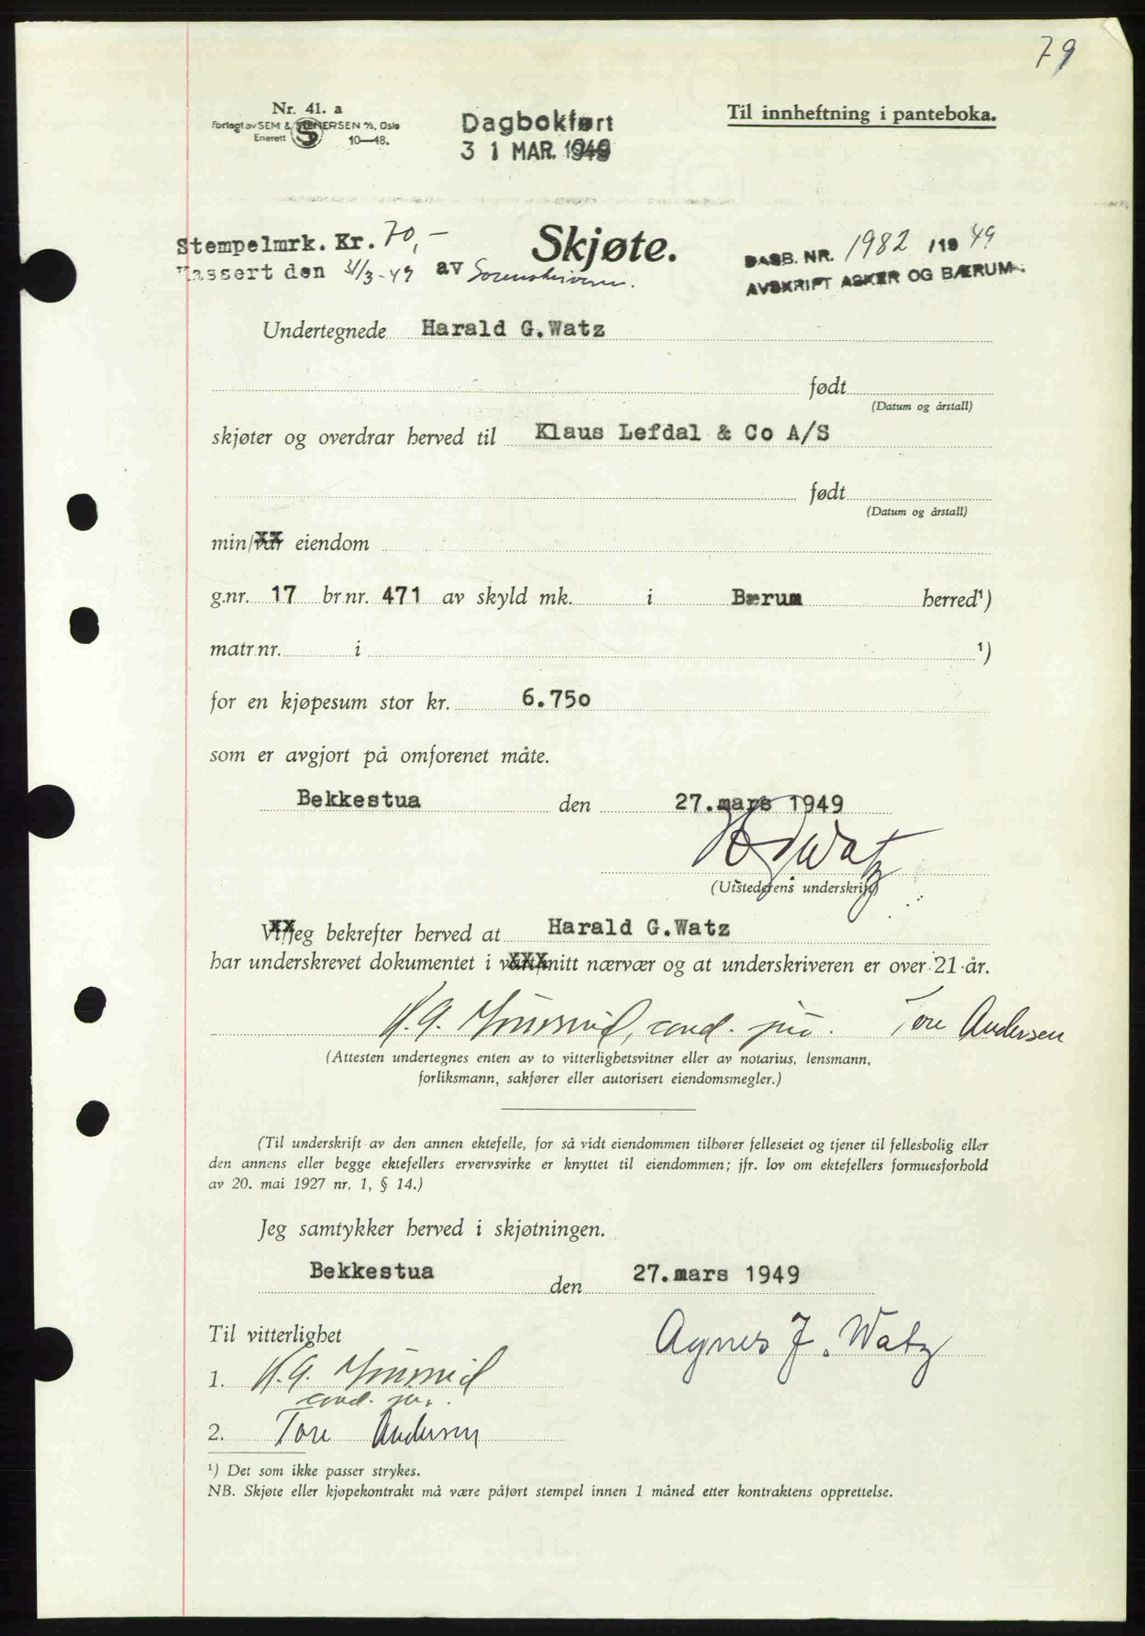 79
Nr. 41. a
Forlagt av SEM & STENERSEN A/S, Oslo
Enerett 10—48.
Dagbokført
31 MAR. 1949
Til innheftning i panteboka.
Stempelmrk. Kr. 70,—
Kassert den 31/3-49 av Sorenskriveren.
Skjøte.
DAGB. NR. 1982 /19 49
AVSKRIFT ASKER OG BÆRUM.
Undertegnede Harald G.Watz
født
(Datum og årstall)
skjøter og overdrar herved til Klaus Lefdal & Co A/S
født
(Datum og årstall)
min/vår eiendom
g.nr. 17 br.nr. 471 av skyld mk. i Bærum herred¹)
matr.nr. i ¹)
for en kjøpesum stor kr. 6.750
som er avgjort på omforenet måte.
Bekkestua den 27.mars 1949
H G Watz
(Utstederens underskrift)
Vi/jeg bekrefter herved at Harald G.Watz
har underskrevet dokumentet i vårt/mitt nærvær og at underskriveren er over 21 år.
H.G. cand. jur. Tore Andersen
(Attesten undertegnes enten av to vitterlighetsvitner eller av notarius, lensmann,
forliksmann, sakfører eller autorisert eiendomsmegler.)
(Til underskrift av den annen ektefelle, for så vidt eiendommen tilhører felleseiet og tjener til fellesbolig eller
den annens eller begge ektefellers ervervsvirke er knyttet til eiendommen; jfr. lov om ektefellers formuesforhold
av 20. mai 1927 nr. 1, § 14.)
Jeg samtykker herved i skjøtningen.
Bekkestua den 27.mars 1949
Til vitterlighet
Agnes J. Watz
1. H.G.
cand. jur.
2. Tore Andersen
¹) Det som ikke passer strykes.
NB. Skjøte eller kjøpekontrakt må være påført stempel innen 1 måned etter kontraktens opprettelse.